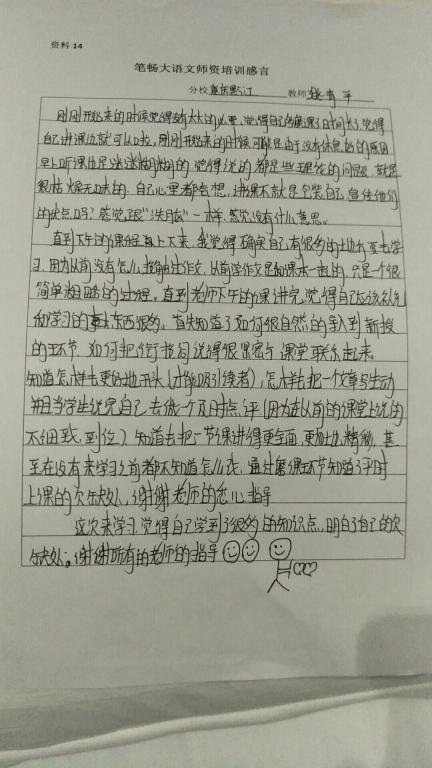 资料 14
笔畅大语文师资培训感言
分校 重庆綦江 教师
刚刚开始来的时候觉得没太大的必要,觉得自己备课了时间长了,觉得
自己讲课也就可以啦,刚刚开始来的时候可能是由于没有休息好的原因
早上听课也是迷迷糊糊的,觉得说的都是些理论的问题,就是
很枯燥无味的。自己心里都在想,讲课不就是包装自己,宣传他们
的优点吗?感觉跟"洗脑"一样,感觉没有什么意思。
直到下午的课程海上下来,我觉得确实自己有很多的地方要去学
习,因为从前没有怎么接触过作文,从前学作文是和课本一起的,只是一个很
简单粗略的过程。直到老师下午的课讲完,觉得自己应该认真
和学习的东西很多。首先知道了如何很自然的导入到新授
的环节,如何把衔接句说得很紧密与课堂联系起来。
知道怎样去更好地开头(才能吸引读者),怎样去把一个文章写生动
并且当学生说完自己去做一个及时点评(因为在从前的课堂上说的
不细致,到位)知道去把一节课讲得更全面,更加地精彩,甚
至在没有来学习之前都不知道怎么玩,通过磨课环节知道了平时
上课的欠缺处,谢谢老师的悉心指导
这次来学习,觉得自己学到了很多的知识点,明白了自己的欠
缺处。谢谢所有的老师的指导